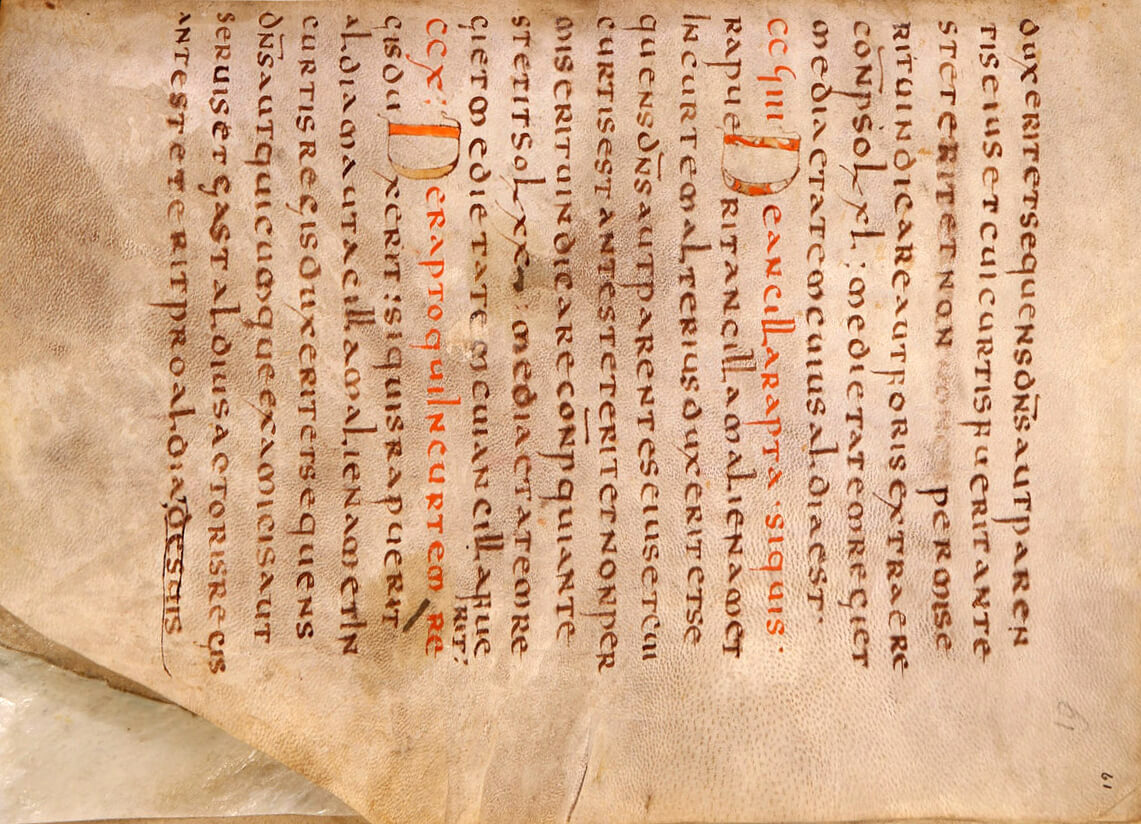 61
61
duxerit et sequens dn̄s aut paren
tis eius et cui curtis fuerit ante
steterit et non permise
rit uindicare aut foris extraere
con̄p sol xl : medietatem regi et
mediaetatem cuius aldia est·
CCϛIII De ancilla rapta · si quis ·
rapuerit ancillam alienam et
in curtem alterius duxerit et se
quens dn̄s aut parentes eius et cui
curtis est ante steterit et non per
miserit uindicare con̄p qui ante
stetit sol xx : mediaetatem re
gi et medietatem cui ancilla fue
rit:
CCX: De rapto qui in curtem re
gis duxerit : si quis rapuerit
aldiam aut acillam alienam et in
curtis regis duxerit et sequens
dn̄s aut quicumque ex amicis aut
seruis et gastaldius actoris regis
ante steterit pro aldia, de suis